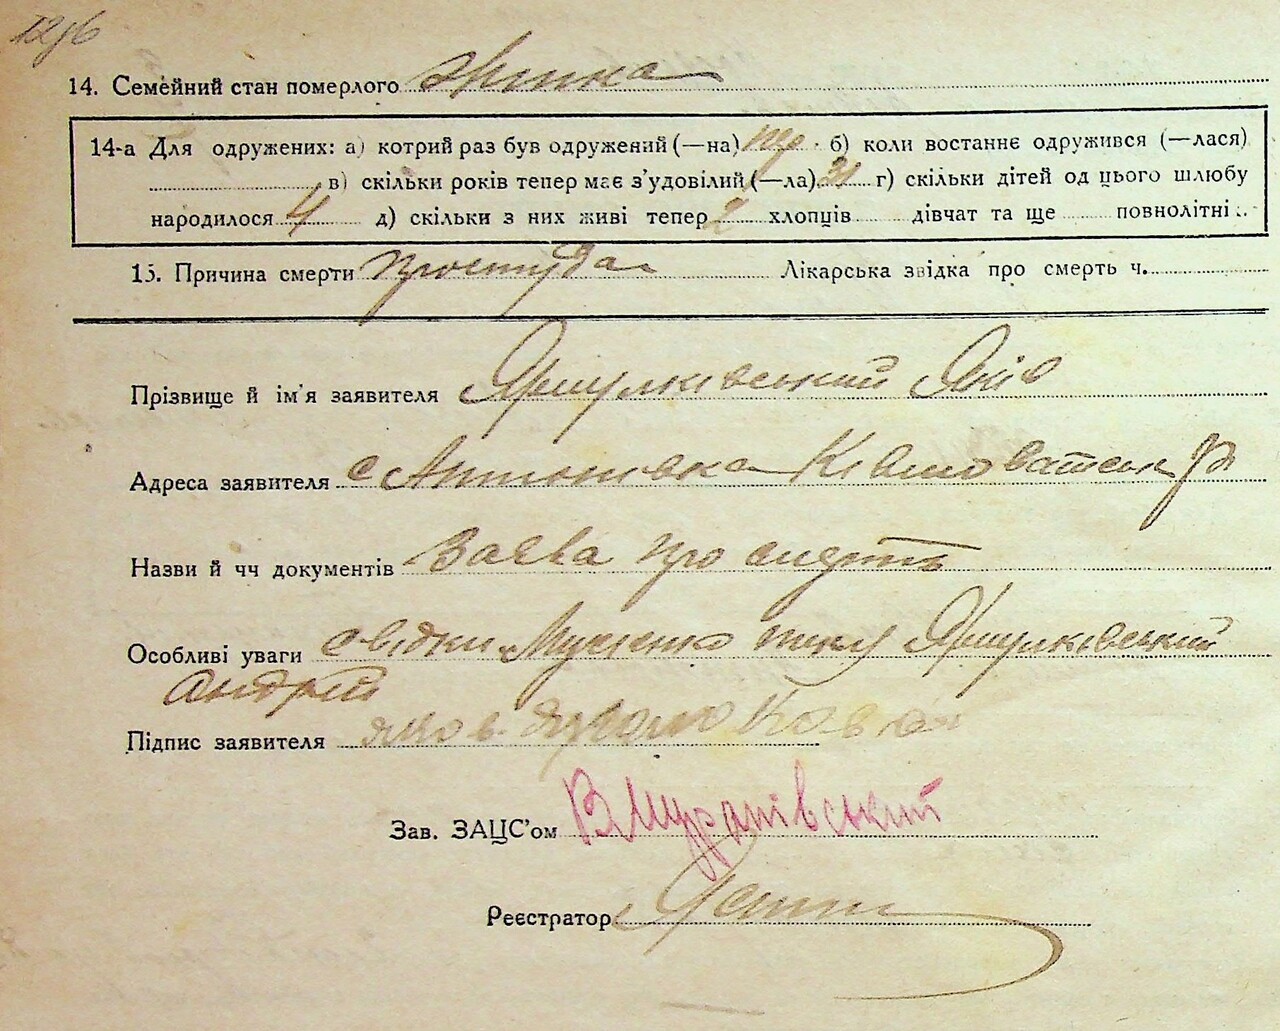 14. Семейний стан померлого
14-а Для одружених: а) котрий раз був одружений (—на) б) коли востаннє одружився (—лася)
в) скільки років тепер має з'удовілий (—ла) 31 г) скільки дітей од цього шлюбу
народилося 4 д) скільки з них живі тепер 2 хлопців дівчат та ще повнолітні
15. Причина смерти простуда Лікарська звідка про смерть ч.
Прізвище й ім'я заявителя Ярмулківський Яків
Адреса заявителя с Антонівка Ківшоватськ р
Назви й чч документів Заєва про смерть
Особливі уваги свідки Мусіенко Ярмулківський
Андрій
Підпис заявителя яков
Зав. ЗАЦС'ом
Реєстратор